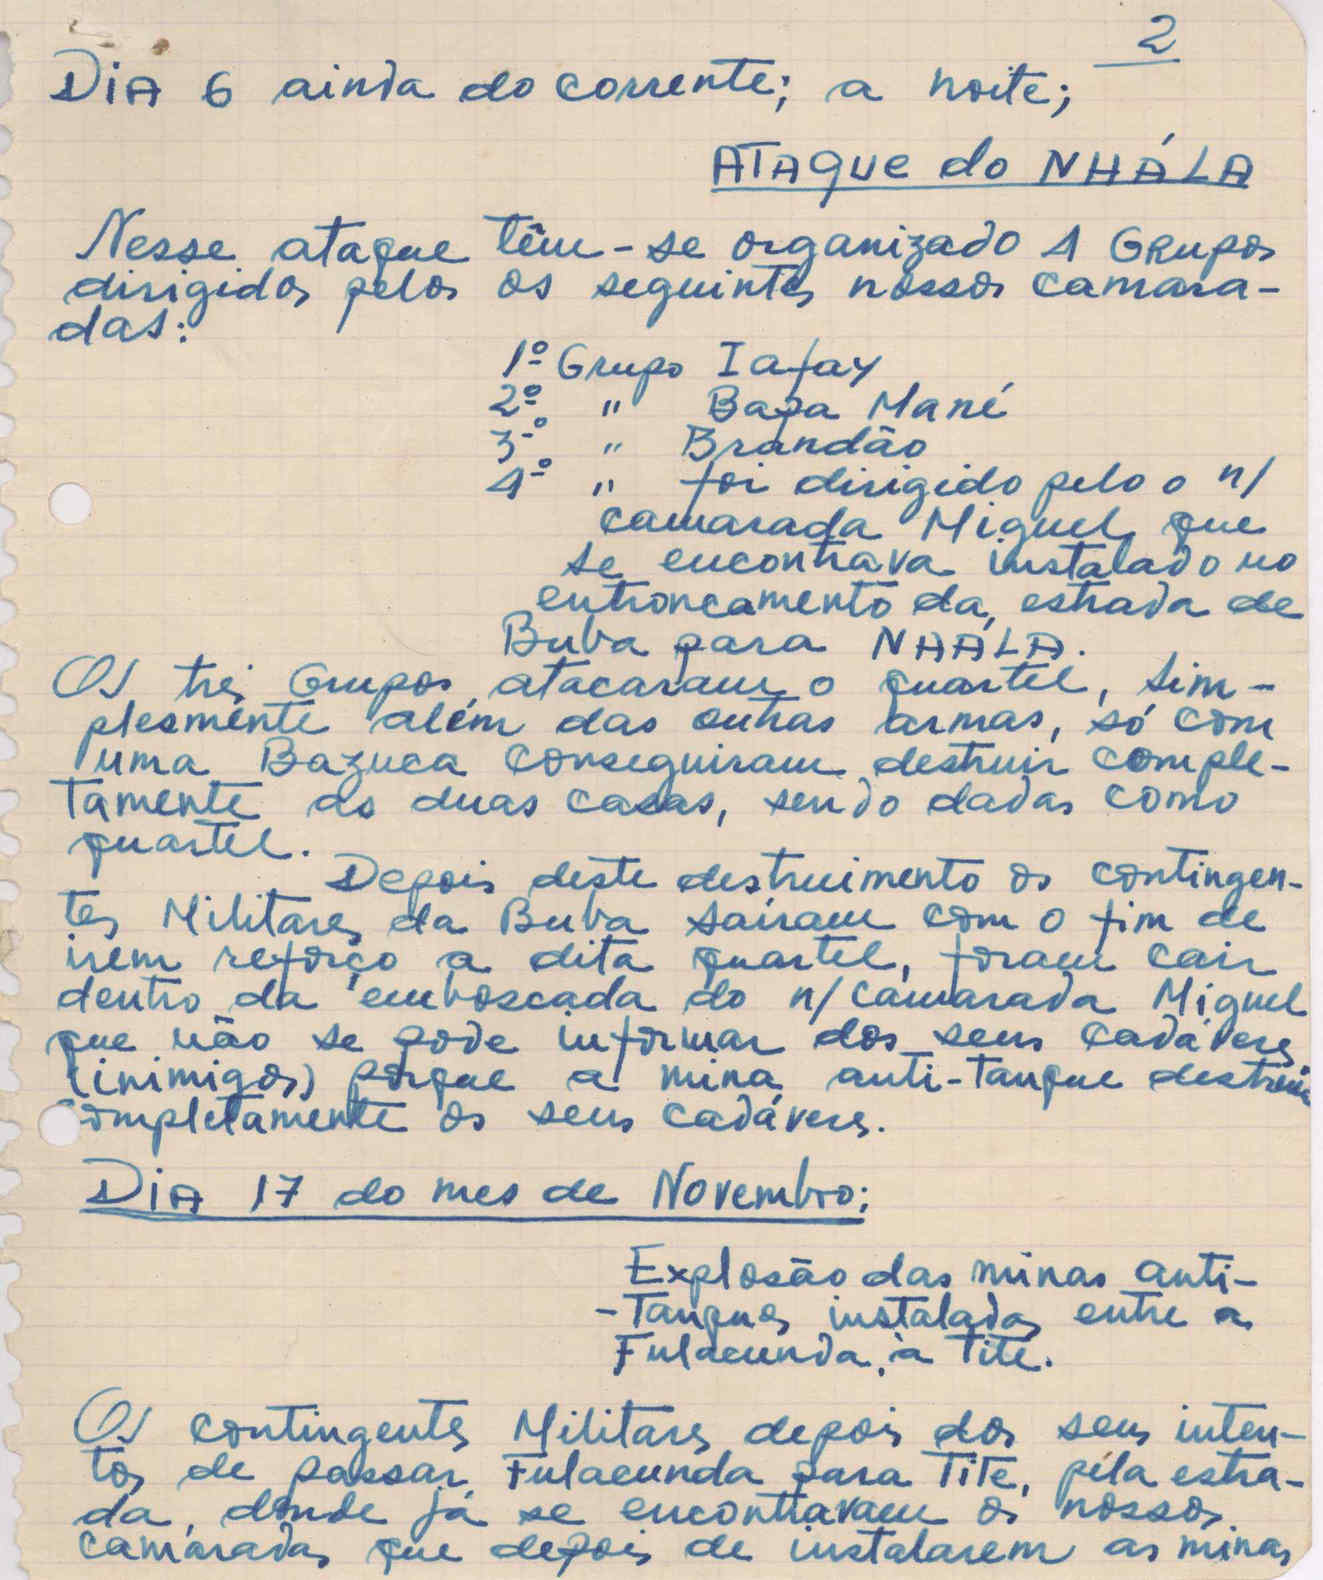 2
DiA 6 ainda do corrente; a noite;
ATAque do NHÁLA
Nesse ataque têm-se organizado 4 Grupos
dirigidos pelos os seguintes nossos camara-
das:
1º Grupo Iafay
2º " Bapa Mané
3º " Brandão
4º " foi dirigido pelo o n/
camarada Miguel que
se encontrava instalado no
entroncamento da estrada de
Buba para NHÁLA.
Os três Grupos atacaram o quartel, sim-
plesmente além das outras armas, só com
uma Bazuca conseguiram destruir comple-
tamente as duas casas, sendo dadas como
quartel.
Depois deste destruimento os contingen-
tes Militares da Buba sairam com o fim de
irem reforço a dita quartel, foram cair
dentro da emboscada do n/camarada Miguel
que não se pode informar dos seus cadáveres
(inimigos) porque a mina anti-tanque destruiu
completamente os seus cadáveres.
DiA 17 do mes de Novembro;
Explosão das minas anti-
-Tanques instalados entre a
Fulacunda à Tite.
Os contingentes Militares depois dos seus inten-
tos de passar Fulacunda para TiTe, péla estra-
da, donde já se encontravam os nossos
camaradas que depois de instalarem as minas